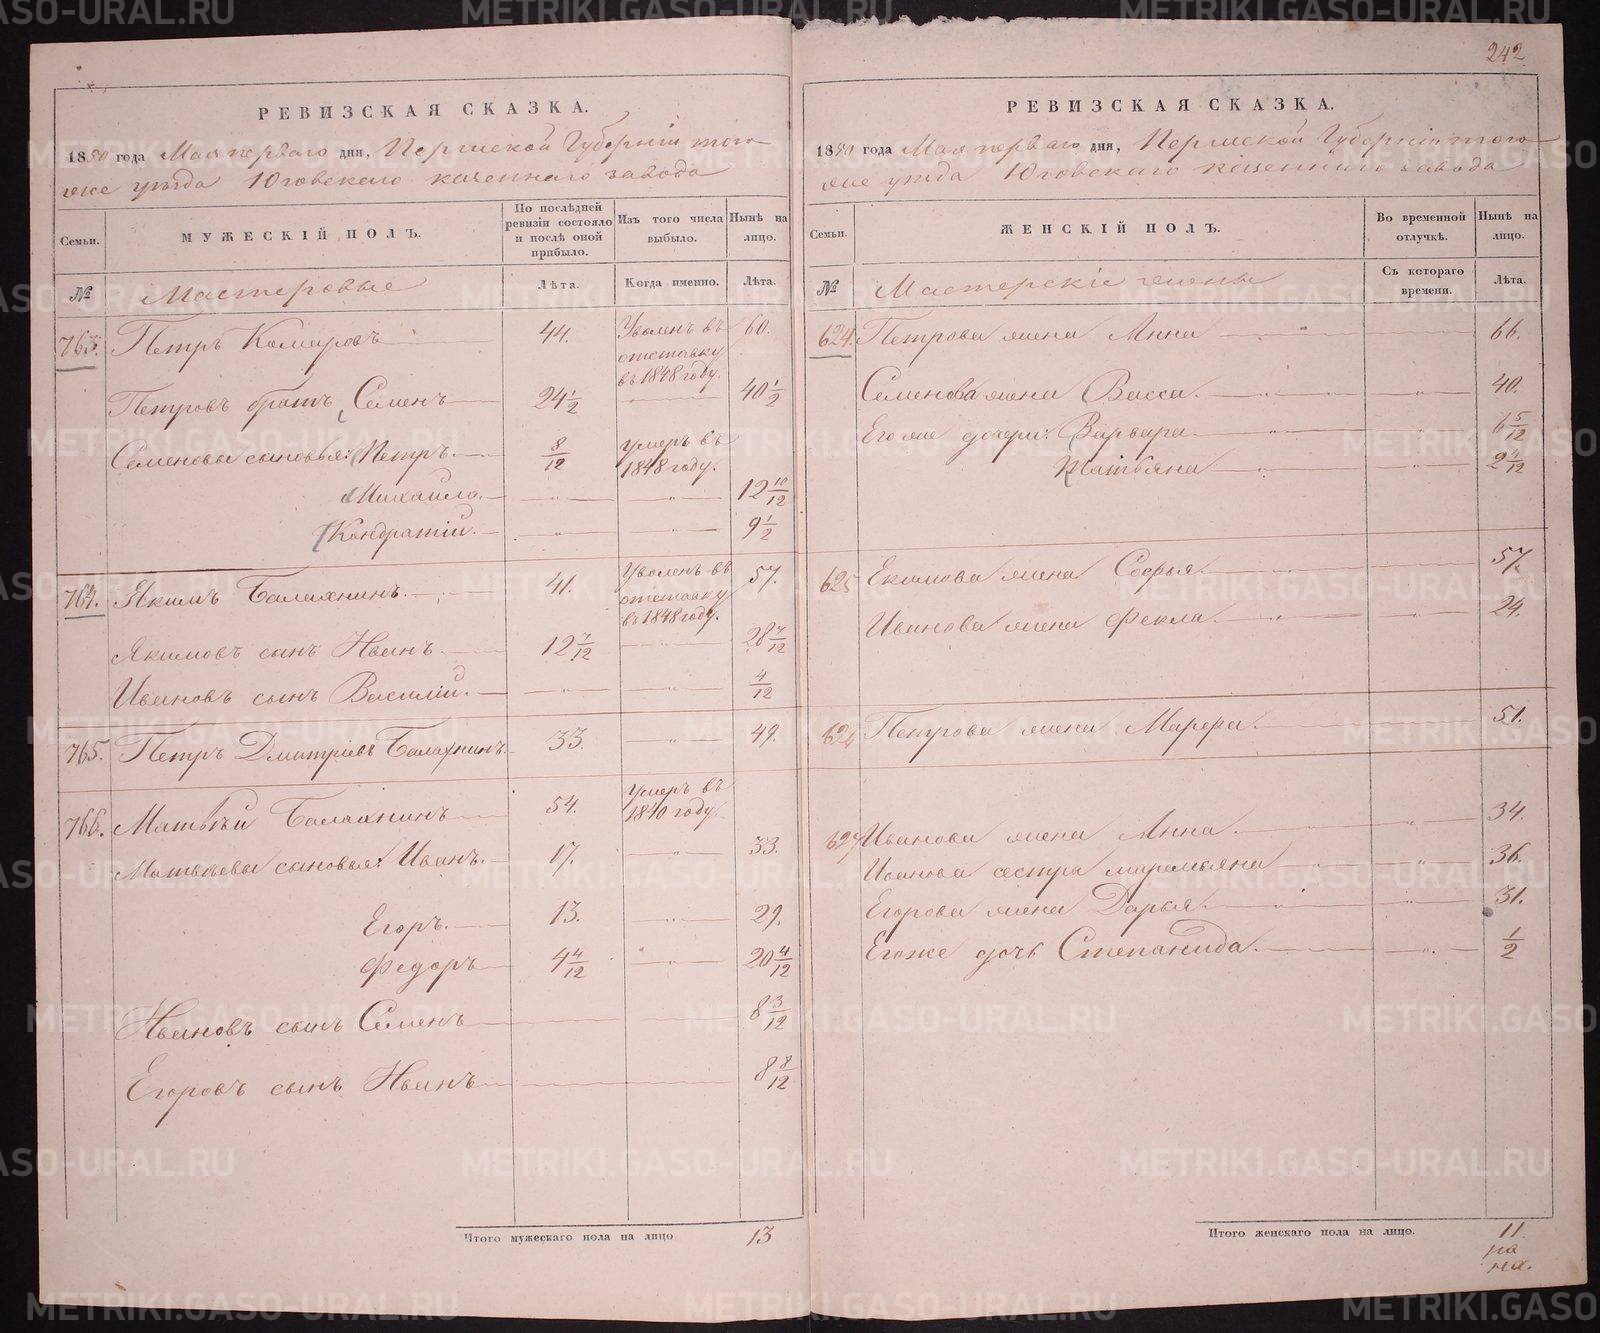 242
РЕВИЗСКАЯ СКАЗКА.
1850 года Мая перваго дня, Пермской Губерніи того
же уезда Юговскаго казеннаго завода
Семьи.
МУЖЕСКІЙ ПОЛЪ.
По послѣдней ревизіи состояло и послѣ оной прибыло.
Изъ того числа выбыло.
Нынѣ на лицо.
№
Мастеровые
Лѣта.
Когда именно.
Лѣта.
763. Петръ Комаровъ 44. Уволенъ въ отставку въ 1848 году. 60.
Петровъ братъ, Семенъ 24 1/2 40 1/2
Семеновы сыновья: Петръ. 8/12 умеръ въ 1848 году.
Михаило. " " 12 10/12
Кондратій. " " 9 1/2
764. Якимъ Балахнинъ. 41. Уволенъ въ отставку въ 1848 году. 57.
Якимовъ сынъ Иванъ. 12 7/12 " 28 7/12
Ивановъ сынъ Василій. " " 4/12
765. Петръ Дмитріевъ Балахнинъ. 33. " 49.
766. Матвѣй Балахнинъ 54. Умеръ въ 1840 году.
Матвѣевы сыновья: Иванъ. 17. " 33.
Егоръ. 13. " 29.
Федоръ 4 4/12 " 20 4/12
Ивановъ сынъ Семенъ 8 3/12
Егоровъ сынъ Иванъ 8 8/12
Итого мужескаго пола на лицо 13
РЕВИЗСКАЯ СКАЗКА.
1850 года Мая перваго дня, Пермской Губерніи того
же уезда Юговскаго казеннаго завода
Семьи.
ЖЕНСКІЙ ПОЛЪ.
Во временной отлучкѣ.
Нынѣ на лицо.
№
Мастерскіе жены
Съ котораго времени.
Лѣта.
624. Петрова жена Анна " 66.
Семенова жена Васса. " " 40.
Его же дочери: Варвара " " 6 5/12
Татьяна " " 2 4/12
625 Екимова жена Софья. 57.
Иванова жена Фекла. " " 24.
626 Петрова жена Марфа. 51.
627 Иванова жена Анна. " 34.
Иванова сестра Маремьяна " " 36.
Егорова жена Дарья. " " 31.
Егоже дочь Степанида. " 1/2
Итого женскаго пола на лицо. 11